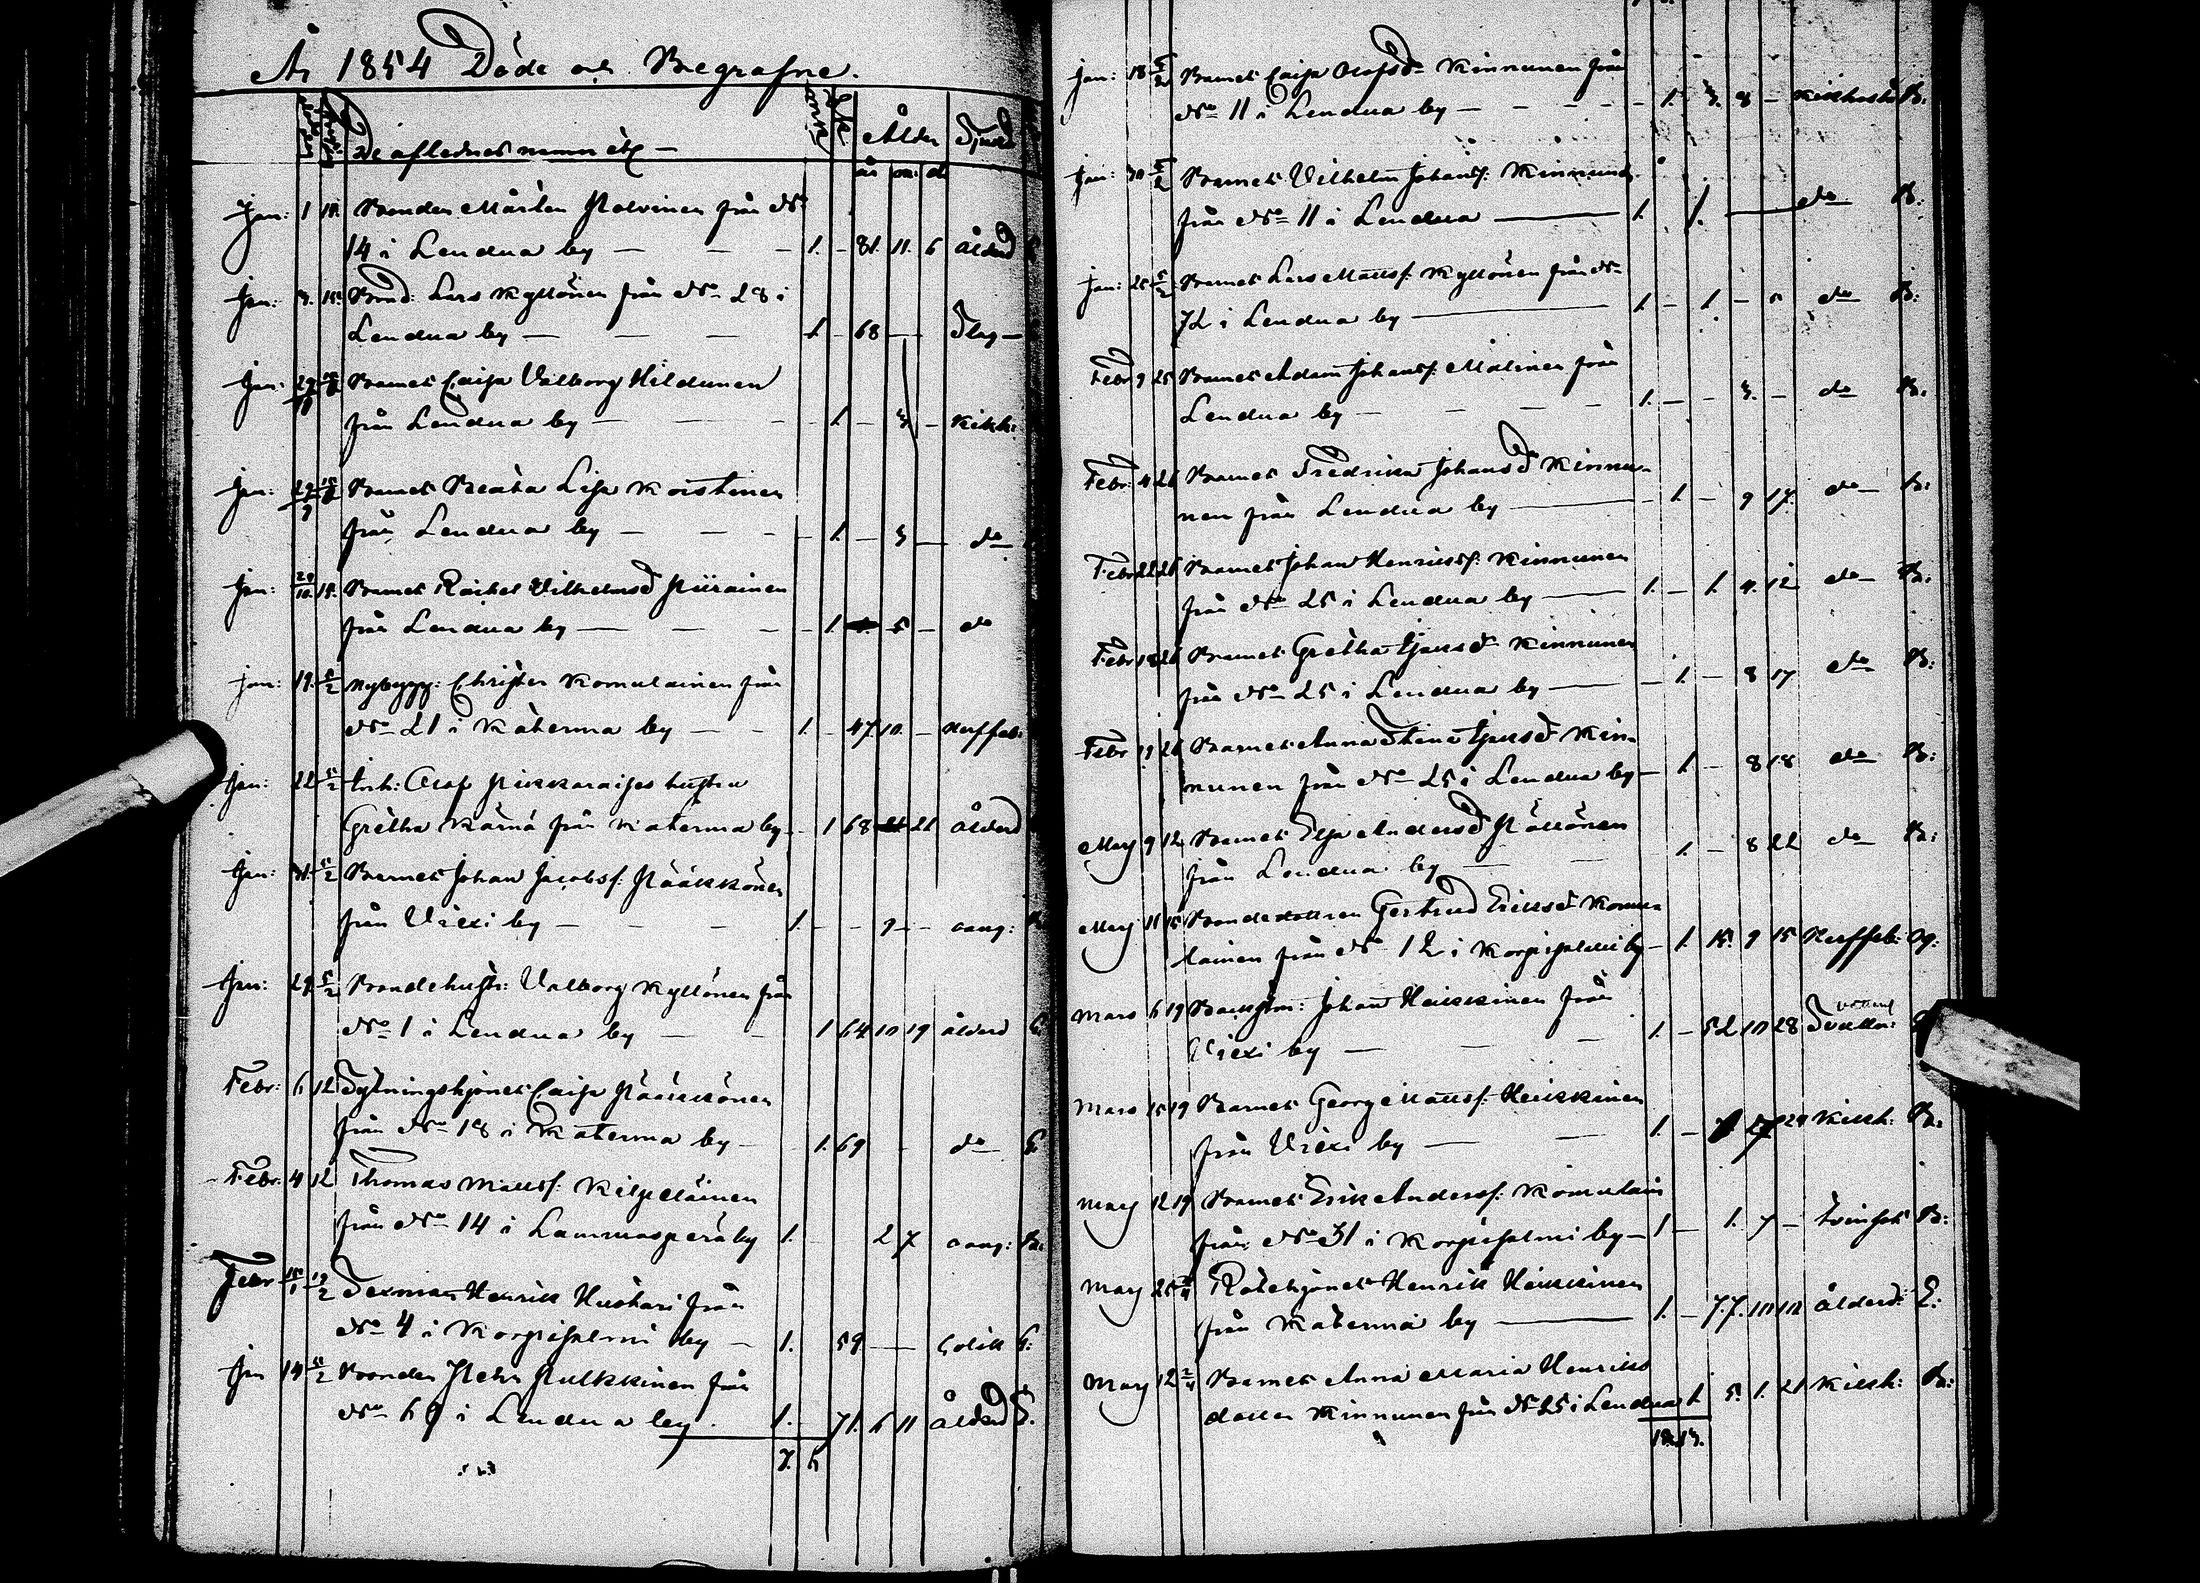 År 1854 Döde och Begrafne.
De aflednes namn etc —
Ålder
år m: d
Jan: 1 15. Bonden Mårten Polvinen från No
14 i Lendua by — — — 1. – 81. 11. 6 Ålderd
Jan: 3. 15. Bond: Lars Kyllönen från No 28 i
Lendua by — — — 1. – 68 — — Slag —
Jan: Barnet Caisa Valborg Hildunen
från Lendua by — — — 1. – 3 – Kikh:
Jan: Barnet Beata Lisa Koistinen
från Lendua by — — – 1. – 3 — do
Jan: 29/10. 15. Barnet Rachel Vilhelmsd Piirainen
från Lendua by — — – 1. 5 – do
Jan: 19. 5/2 Nybygg: Christer Komulainen från
No 21 i Katerma by — – 1. – 47 10. –
Jan: 22 5/2 Inh: Olof Pikkaraises hustru
Gretha Kärnä från Katerma by – 1 68 21 Ålderd
Jan: 31. 5/2 Barnet Johan Jacobsf. Pääkkönen
från Viexi by — — — 1. – – 9 – –
Jan: 29. 5/2 Bondehustr: Valborg Kyllönen från
No 1 i Lendua by — — 1 64 10 19 Ålderd
Febr: 6 12 Sytningshjonet Caisa Pääkkönen
från No 18 i Katerma by — 1. 69 – do E.
Febr: 4 12 Thomas Mattsf. Kilpeläinen
från No 14 i Lammasperä by 1. – 2 7 B.
Febr 15/1 12/2 Sexman Henrik Huohari från
No 4 i Korpisalmi by — 1. 59 — — Colik G.
Jan 14 5/2 Bonden Petr Pulkkinen från
No 69 i Lendua by. 1. – 71. 6 11 Ålderd E.
7. 6
Jan: 18 5/2 Barnet Caisa Olofsd. Kinnunen från
No 11 i Lendua by — – – – 1. 3. 8 – Kikhosta B.
Jan: 30 5/2 Barnet Vilhelm Johansf. Kinnunen
från No 11 i Lendua — 1. 1. — do B.
Jan: 25 5/2 Barnet Lars Mattsf. Kyllönen från No
72 i Lendua by — 1. – 1. – 5 do B:
Febr 9 25 Barnet Adam Johansf. Malinen från
Lendua by — – – – 1. – – 3. – do B.
Febr: 4 26 Barnet Fredrika Johansd Kinnu-
nen från Lendua by — – 1. – 9 17. do B:
Febr 22 26 Barnet Johan Henrikssf. Kinnunen
från No 25 i Lendua by — 1. – 1. 4. 12 do B:
Febr 18 26 Barnet Gretha Isaksd Kinnunen
från No 25 i Lendua by — – 1. – 8 17 do B:
Febr 19 26 Barnet Anna Stina Isaksd Kin-
nunen från No 25 i Lendua by – 1. – 8 18 do B:
Mars 9 12 Barnet Elsa Andersd Pöllönen
från Lendua by — — 1. – 8 22 do B:
Mars 11 15 Bondedottren Gertrud Eriksd Komu-
lainen från No 12 i Korpisalmi by – 1. 15. 9 15 Og:
Mars 6 19 Backstm: Johan Heikkinen från
Viexi by — — – 1. – 52 10 28
Mars 15 19 Barnet Georg Mattsf. Heikkinen
från Viexi by — — 1. – 29 Kikh: B.
Mars 12 19 Barnet Erik Anderssf. Komulain
från No 31 i Korpisalmi by – 1 – 1. 7 – B:
Mars 25 2/4 Rotehjonet Henrik Heikkinen
från Katerma by — 1. – 77. 10 12 Ålderd: E:
Mars 12 2/4 Barnet Anna Maria Henriks
dotter Kinnunen från No 25 i Lendua 1. 5. 1. 21 Kikh: B: